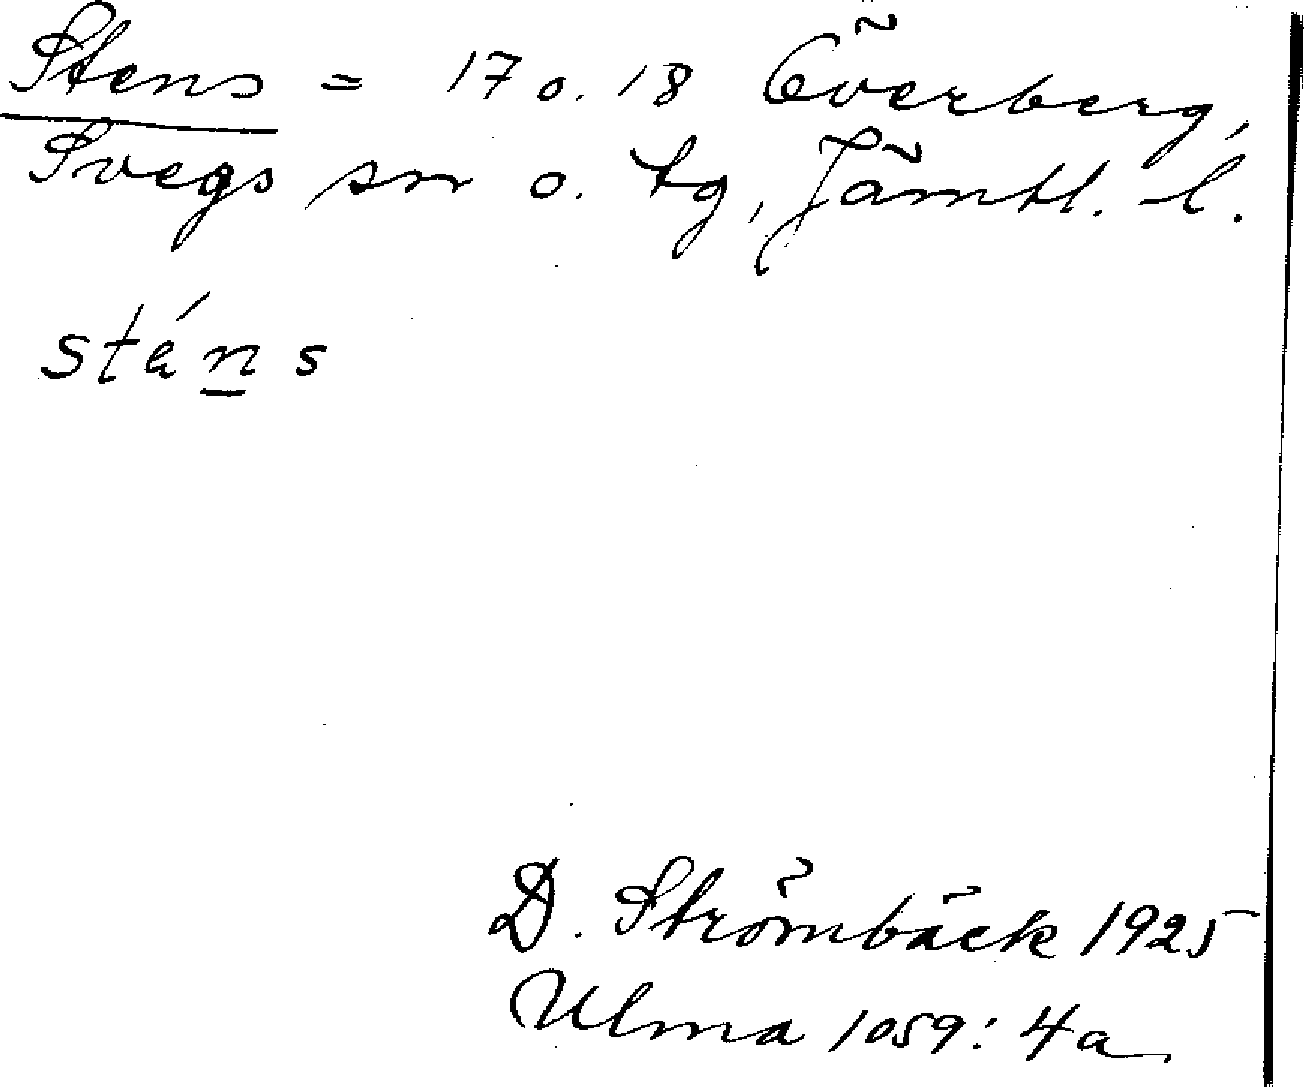 Stens = 17 o. 18 Överberg,
Svegs sn o. tg, Jämtl. l.
sténs
D. Strömbäck 1925
Ulma 1059:4a